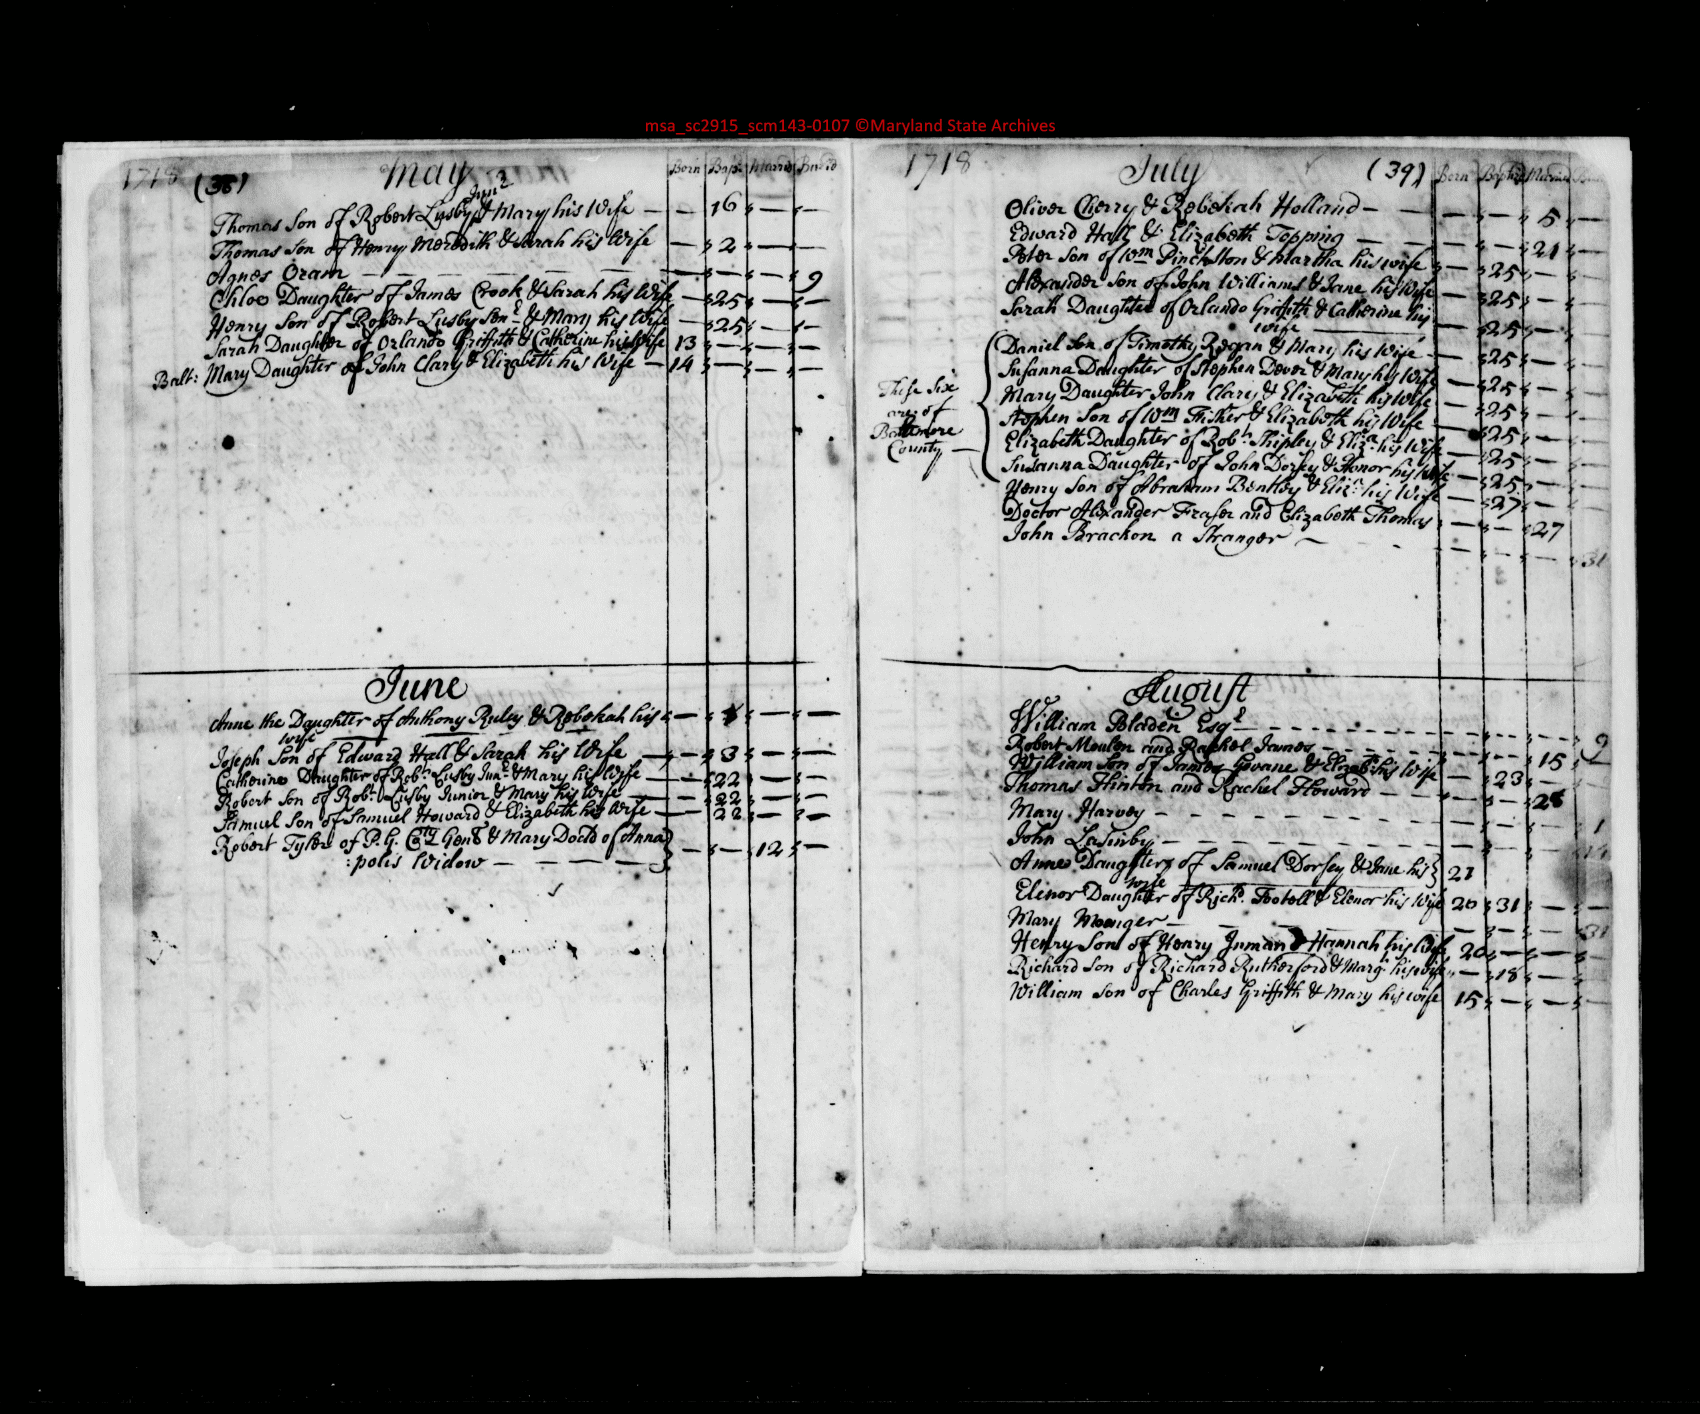 msa_sc2915_scm143-0107 ©Maryland State Archives
1718 (38) May Born Bapt. Married Buried
Thomas Son of Robert Lusby Junr & Mary his Wife — — 16 — —
Thomas Son of Henry Meredith & Sarah his Wife — 2 — —
Agnes Oram — — — — 9
Chloe Daughter of James Crook & Sarah his Wife — 25 — —
Henry Son of Robert Lusby Senr & Mary his Wife — 25 — —
Sarah Daughter of Orlando Griffith & Catherine his Wife 13 — — —
Balt: Mary Daughter of John Clary & Elizabeth his Wife — 14 — — —
June
Anne the Daughter of Anthony Ruley & Rebekah his — — —
wife
Joseph Son of Edward Hall & Sarah his Wife — — 3 — —
Catherine Daughter of Robt Lusby Junr & Mary his Wife — 22 — —
Robert Son of Robt Lusby Junior & Mary his Wife — 22 — —
Samuel Son of Samuel Howard & Elizabeth his Wife — 22 — —
Robert Tyler of P. G. Cty Gent & Mary Doctd of Anna } — — 12 —
:polis Widow — — — —
1718 July (39) Born Baptiz
Oliver Cherry & Rebekah Holland — — — — 5 —
Edward Hall & Elizabeth Topping — — — — 21 —
Peter Son of Wm Pinckston & Martha his wife — 25 — —
Alexander Son of John Williams & Jane his Wife — 25 — —
Sarah Daughter of Orlando Griffith & Catherine his
wife — 25 — —
Daniel Son of Timothy Regan & Mary his Wife — 25 — —
Susanna Daughter of Stephen Dever & Mary his Wife — 25 — —
Mary Daughter John Clary & Elizabeth his Wife — 25 — —
Stephen Son of Wm Fisher & Elizabeth his Wife — 25 — —
Elizabeth Daughter of Robt Shipley & Eliza his Wife — 25 — —
Susanna Daughter of John Dorsey & Honor his Wife — 25 — —
These Six
are of
Baltimore
County —
Henry Son of Abraham Bentley & Eliz his Wife — 27 — —
Doctor Alexander Fraser and Elizabeth Thomas — — 27
John Bracken a Stranger — — — — 31
August
William Bladen Esqr — — — — 9
Robert Moulen and Rachel James — — — 15 —
William Son of James Govane & Elizabth his Wife — 23 — —
Thomas Hinton and Rachel Howard — — — 28
Mary Harvey — — — — 1
John Lasinby — — — — 14
Anne Daughter of Samuel Dorsey & Jane his } 21
wife
Elinor Daughter of Richd Tootell & Elenor his Wife 20 31 — —
Mary — — — — 31
Henry Son of Henry Inman & Hannah his Wife 20 — — —
Richard Son of Richard Rutherford & Margt his wife — 18 — —
William Son of Charles Griffith & Mary his wife 15 — — —